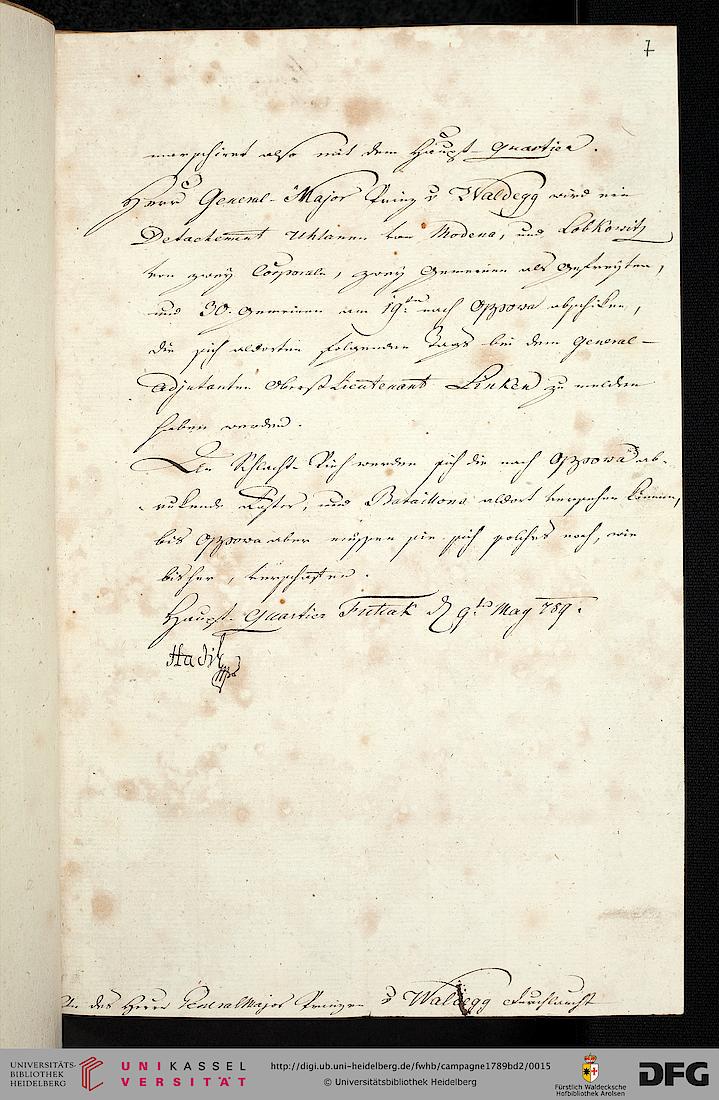 7
marschiret also mit dem Haupt-Quartier.
Herr General-Major Prinz v Waldegg wird ein
Detachement Uhlanen von Modena, und Lobkowitz
von zwey Corporaln, zwey Gemeinen als Gefreyten,
und 30. Gemeinen am 19ten nach Oppowa abschiken,
die sich aldorten folgenden Tags bei dem General-
Adjutanten Oberst Lieutenant Linken zu melden
haben werden.
Schlacht-Vieh werden sich die nach Oppowa ab-
rukende und Bataillons aldort versehen können,
bis Oppowa aber müssen sie sich solches noch, wie
bisher, verschaffen.
Haupt-Quartier Futtak d 9ten May 789.
Hadik
An des Herrn General Major Prinzen v Waldegg Durchlaucht
UNIVERSITÄTS-
BIBLIOTHEK
HEIDELBERG
UNIKASSEL
VERSITÄT
http://digi.ub.uni-heidelberg.de/fwhb/campagne1789bd2/0015
© Universitätsbibliothek Heidelberg
Fürstlich Waldecksche
Hofbibliothek Arolsen
DFG